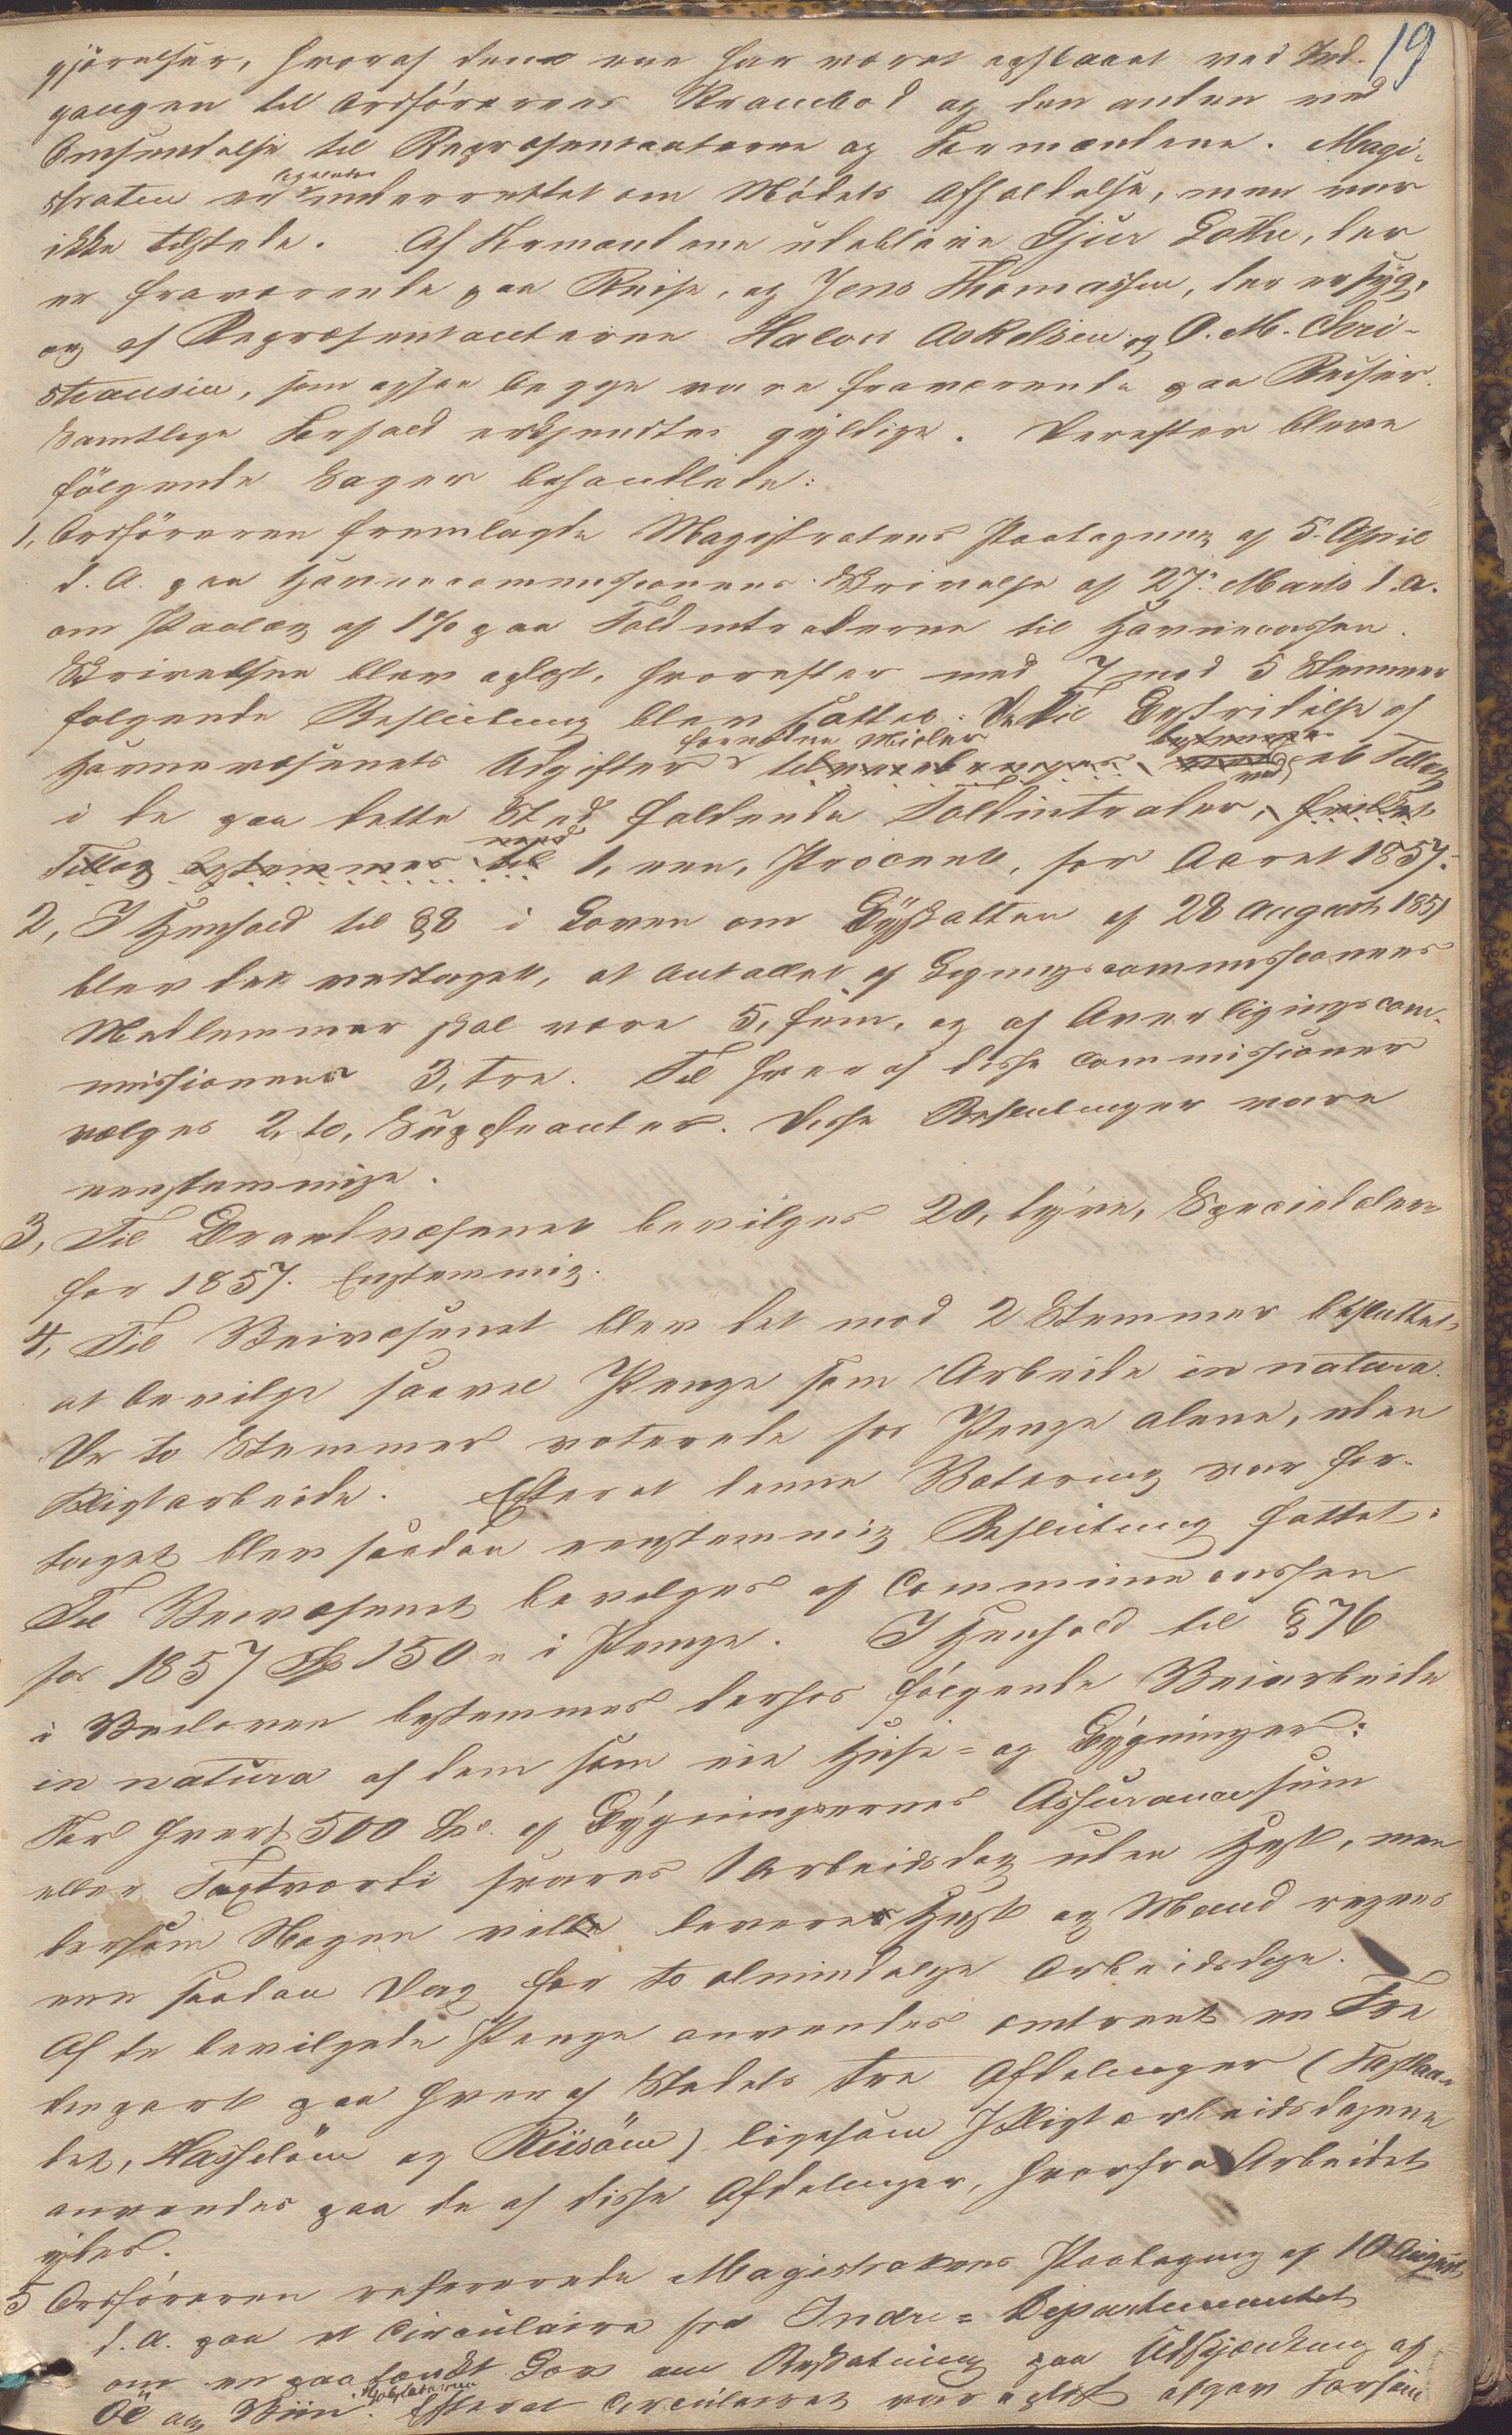 19
gjörelser, hvoraf den ene har været opslaaet ved Ind-
gangen til Ordförerens Krambod og den anden ved
Omsendelse til Repræsentanterne og Formændene. Magi-
straten er ligeledes underrettet om Mödets Afholdelse, men var
ikke tilstede. Af Formændene udebleve Sjur Lothe, der
er fraværende paa Reise, og Jens Thomassen, der er syg,
og af Repræsentanterne Halvor Askelsen og O. M. Chri-
stiansen, som ogsaa begge vare fraværende paa Reiser.
Samtlige Forfald erkjendtes gyldige. Derefter bleve
fölgende Sager behandlede:
1, Ordföreren fremlagde Magistratens Paategning af 5 April
d. A. paa Havnecommissionens Skrivelse af 27. Marts d. A.
om Paalæg af 1 % paa Toldintraderne til Havnecassen.
Skrivelsen blev oplæst, hvorefter med 7 mod 5 Stemmer
fölgende Beslutning blev fattet: Til Bestridelse af
Havnevæsenets Udgifter fornödne Midler tilveiebringes ved et Tillæg
i de paa dette Sted faldende Toldintrader, hvilket
Tillæg bestemmes til 1, een, Procent, for Aaret 1857.
2, I Henhold til §8 i Loven om Byskatten af 28 August 1851
blev det vedtaget, at Antallet af Ligningscommissionens
Medlemmer skal være 5, fem, og af Overligningscom-
missionens 3, tre. Til hver af disse Commissioner
vælges 2, to, Suppleanter. Disse Beslutninger vare
eenstemmige.
3, Til Brandvæsenet bevilges 20, tyve, Speciedaler
for 1857. Enstemmig.
4, Til Veivæsenet blev det mod 2 Stemmer besluttet
at bevilge saavel Penge som Arbeide in natura.
De to Stemmer voterede for Penge alene, uden
Pligtarbeide. Efterat denne Votering var fore-
taget blev saadan eenstemmig Beslutning fattet:
Til Veivæsenet bevilges af Communecassen
for 1857 Sp 150 " i Penge. I Henhold til §76
i Veiloven bestemmes derfor fölgende Veiarbeide
in natura af dem som eie Huse- og Bygninger:
For hvert 500 Sp. af Bygningernes Assurancesum
eller Taxtværdi svares 1 Arbeidsdag uden Hest, men
dersom Nogen vil levere Hest og Mand regnes
een saadan Dag for to almindelige Arbeidsdage.
Af de bevilgede Penge anvendes omtrent en Tre
diepart paa hver af Stedets tre Afdelinger (Fastlan-
det, Hasselöen og Riisöen) ligesom Pligtarbeidsdagene
anvendes paa de af disse Afdelinger, hvorfra Arbeidet
ydes.
5 Ordföreren refererede Magistratens Paategning af 10 August
d. A. paa et Circulaire fra Indre-Departementet
om en paatænkt Lov om Beskatning paa Udskjænkning af
Öl og Viin i Kjöbstæderne. Efterat Circulairet var oplæst afgav Forsam